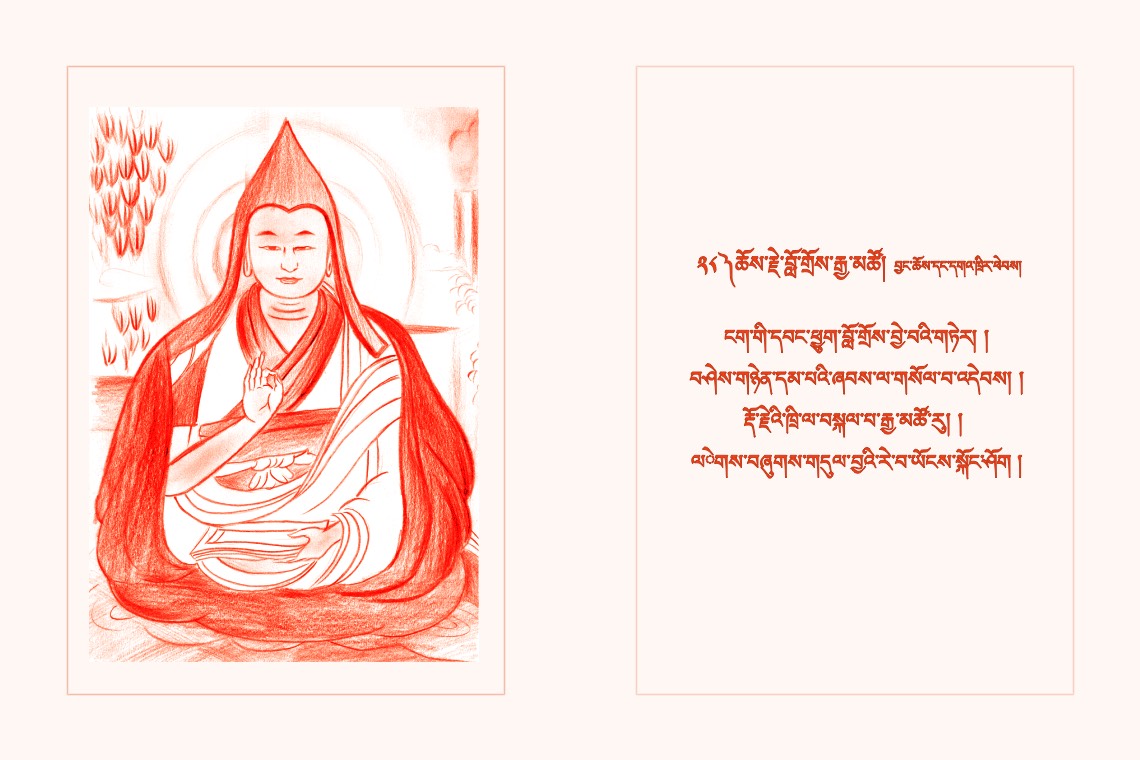 ༢༨ ༽ ཆོས་རྗེ་བློ་གྲོས་རྒྱ་མཚོ། བྱང་ཆོས་དང་དགའ་ཁྲིར་ཕེབས།
ངག་གི་དབང་ཕྱུག་བློ་གྲོས་བྱེ་བའི་གཏེར། །
བཤེས་གཉེན་དམ་པའི་ཞབས་ལ་གསོལ་བ་འདེབས། །
རྡོ་རྗེའི་ཁྲི་ལ་བསྐལ་པ་རྒྱ་མཚོ་རུ། །
ལེགས་བཞུགས་གདུལ་བྱའི་རེ་བ་ཡོངས་སྐོང་ཤོག །